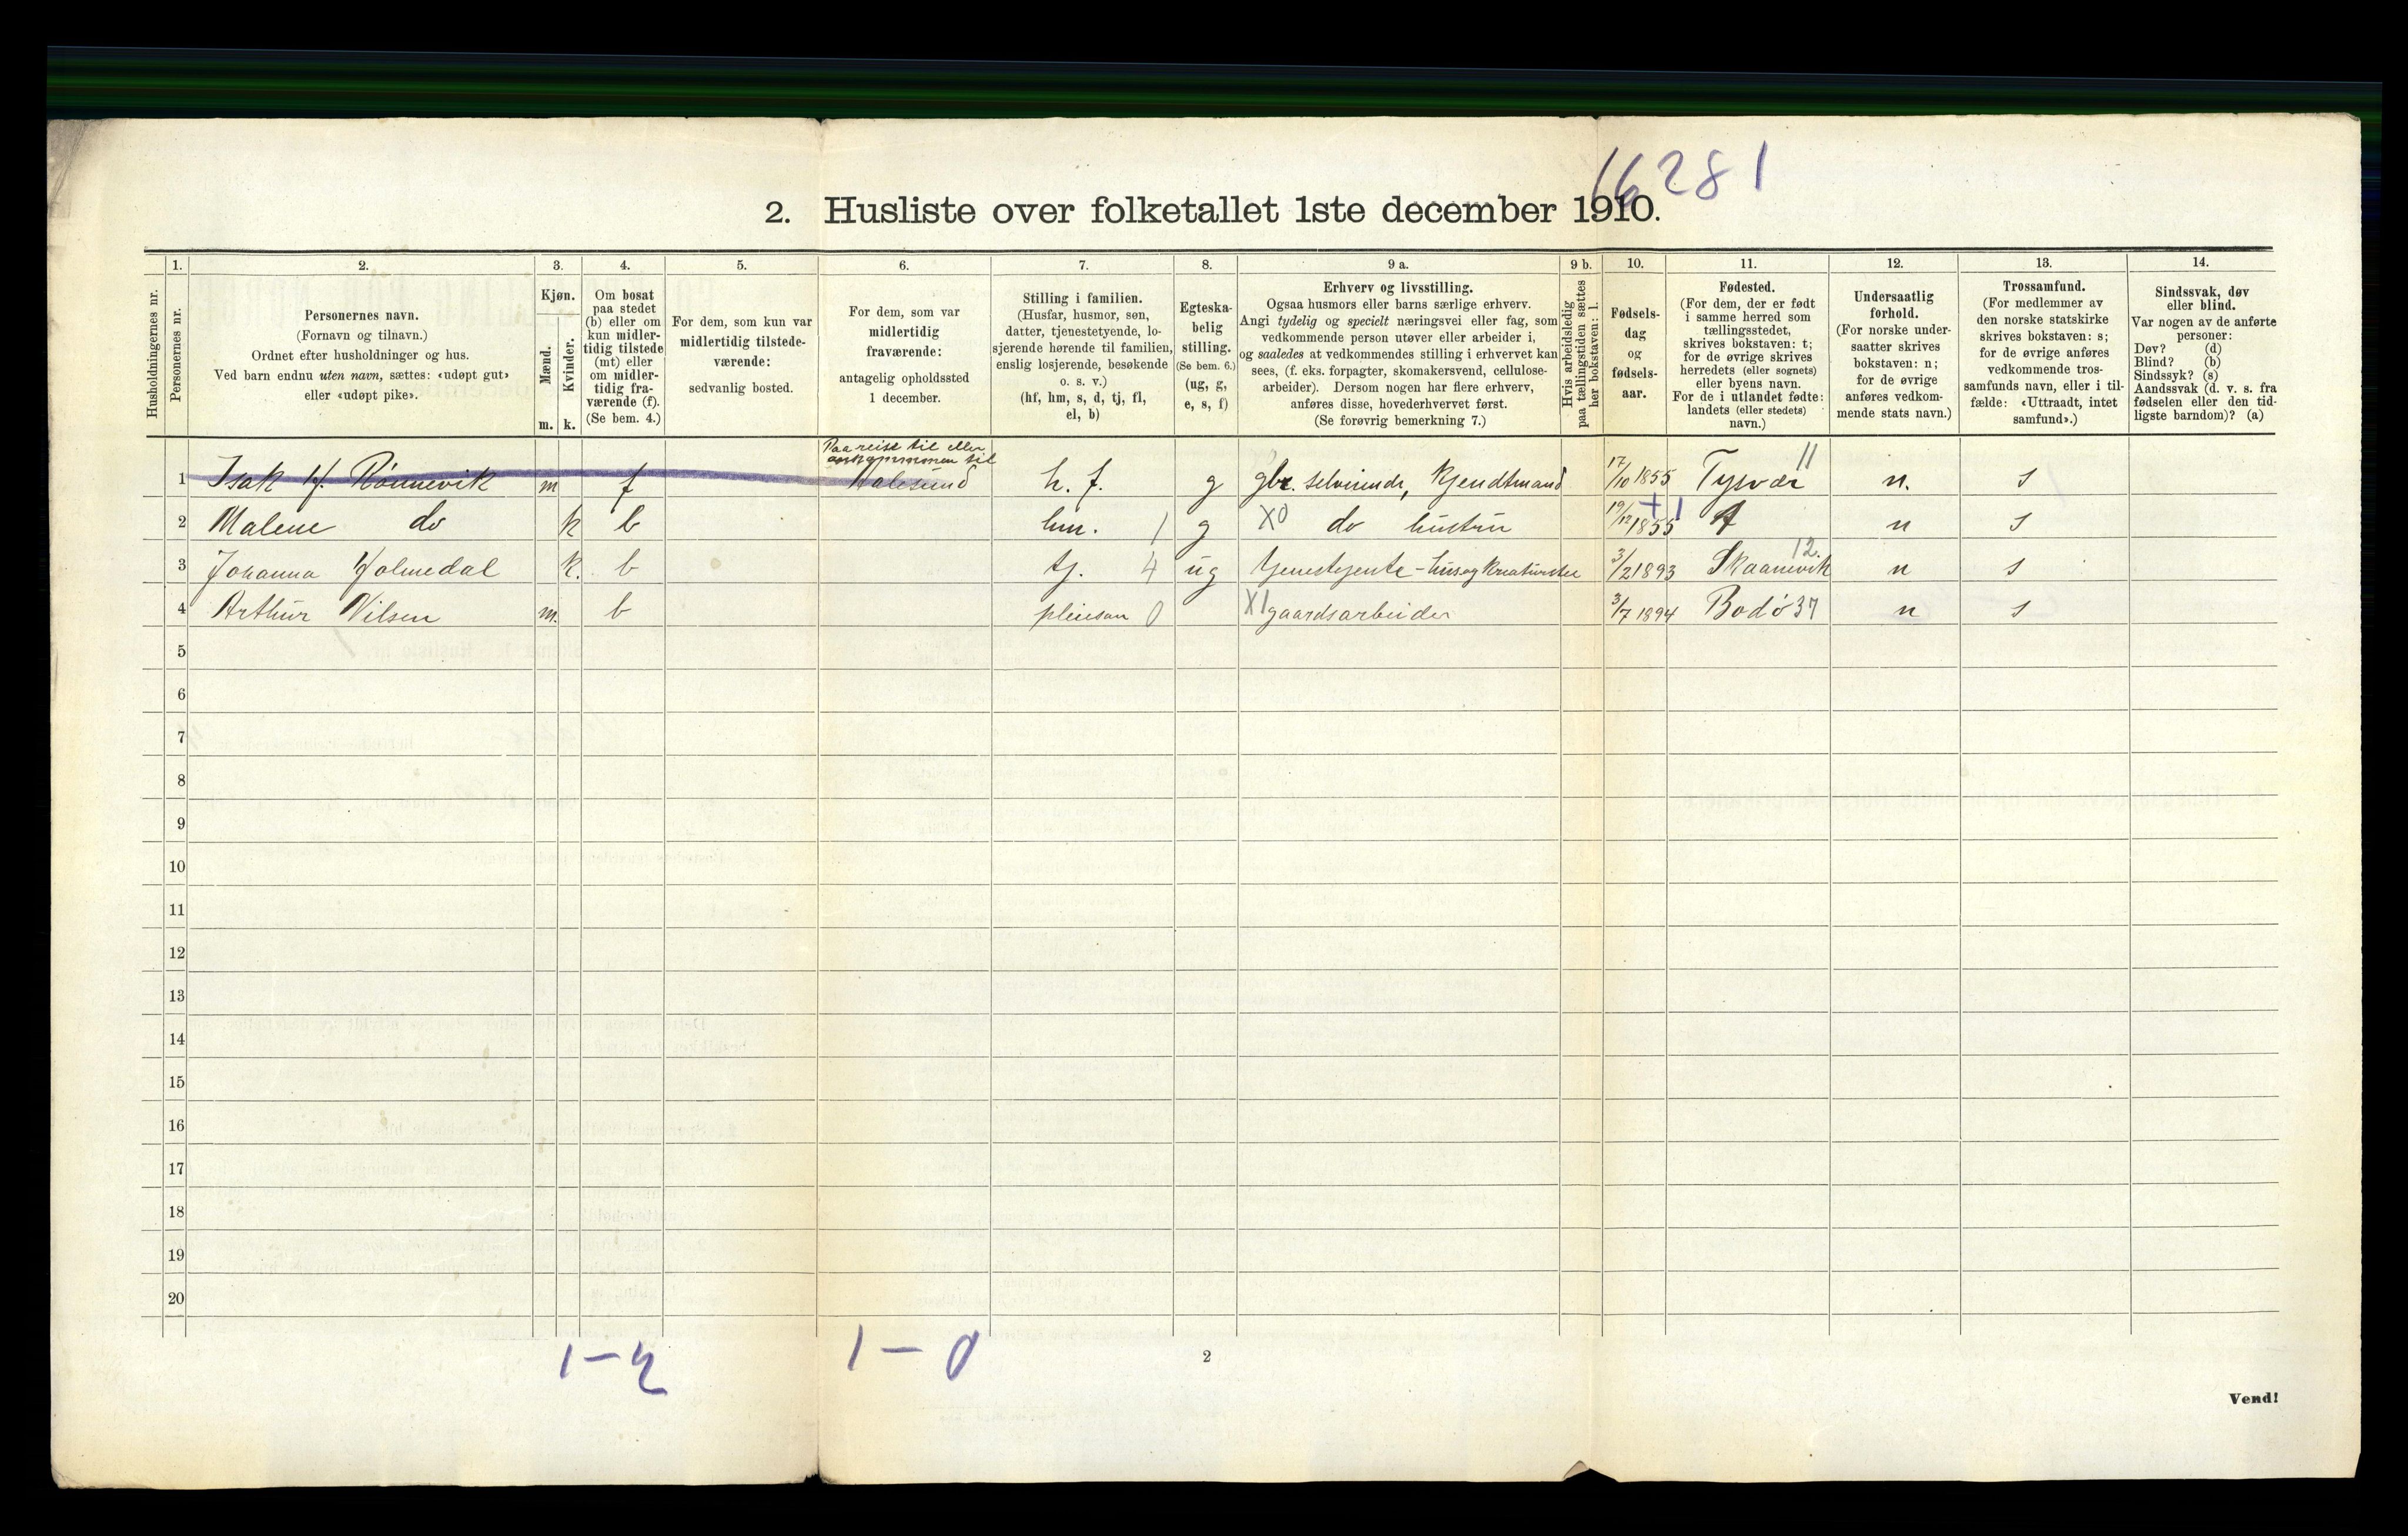 16281
2. Husliste over folketallet 1ste december 1910.
Husholdningernes nr.
1.
Personernes nr.
2.
Personernes navn.
(Fornavn og tilnavn.)
Ordnet efter husholdninger og hus.
Ved barn endnu uten navn, sættes: «udøpt gut»
eller «udøpt pike».
3.
Kjøn.
Mænd.
Kvinder.
m. k.
4.
Om bosat
paa stedet
(b) eller om
kun midler-
tidig tilstede
(mt) eller
om midler-
tidig fra-
værende (f).
(Se bem. 4.)
5.
For dem, som kun var
midlertidig tilstede-
værende:
sedvanlig bosted.
6.
For dem, som var
midlertidig
fraværende:
antagelig opholdssted
1 december.
7.
Stilling i familien.
(Husfar, husmor, søn,
datter, tjenestetyende, lo-
sjerende hørende til familien,
enslig losjerende, besøkende
o. s. v.)
(hf, hm, s, d, tj, fl,
el, b)
8.
Egteska-
belig
stilling.
(Se bem. 6.)
(ug, g,
e, s, f)
9 a.
Erhverv og livsstilling.
Ogsaa husmors eller barns særlige erhverv.
Angi tydelig og specielt næringsvei eller fag, som
vedkommende person utøver eller arbeider i,
og saaledes at vedkommendes stilling i erhvervet kan
sees, (f. eks. forpagter, skomakersvend, cellulose-
arbeider). Dersom nogen har flere erhverv,
anføres disse, hovederhvervet først.
(Se forøvrig bemerkning 7.)
9 b.
Hvis arbeidsledig
paa tællingstiden sættes
her bokstaven: l.
10.
Fødsels-
dag
og
fødsels-
aar.
11.
Fødested.
(For dem, der er født
i samme herred som
tællingsstedet,
skrives bokstaven: t;
for de øvrige skrives
herredets (eller sognets)
eller byens navn.
For de i utlandet fødte:
landets (eller stedets)
navn.)
12.
Undersaatlig
forhold.
(For norske under-
saatter skrives
bokstaven: n;
for de øvrige
anføres vedkom-
mende stats navn.)
13.
Trossamfund.
(For medlemmer av
den norske statskirke
skrives bokstaven: s;
for de øvrige anføres
vedkommende tros-
samfunds navn, eller i til-
fælde: «Uttraadt, intet
samfund».)
14.
Sindssvak, døv
eller blind.
Var nogen av de anførte
personer:
Døv? (d)
Blind? (b)
Sindssyk? (s)
Aandssvak (d. v. s. fra
fødselen eller den tid-
ligste barndom)? (a)
Paa reise til eller
til
1 Isak H. Rønnevik m f Aalesund h. f. g gbr. selveiende, Kjendtmand 17/10 1855 Tysvær 11 n. s
2 Malene do k b hm. 1 g X0 do hustru 19/12 1855 + 1 t n s
3 Johanna Holmedal k. b tj. 4 ug tjenestejente - hus og kreaturstel 3/2 1893 Skaanevik 12. n s
4 Arthur Nilsen m. b pleiesøn 0 X1 gaardsarbeider 3/7 1894 Bodø 37 n s
5
6
7
8
9
10
11
12
13
14
15
16
17
18
19
20
1 - 2 1 - 0
2
Vend!